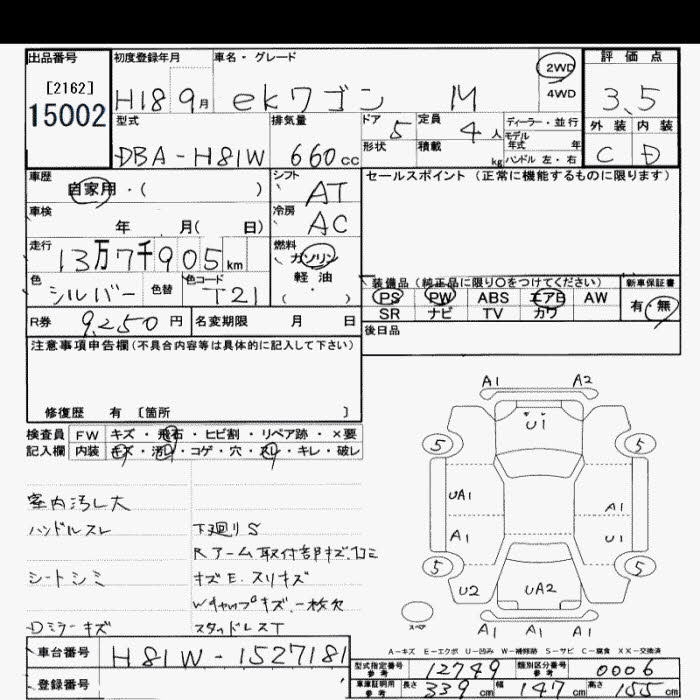 出品番号 初度登録年月 車名・グレード 2WD 評価点
[2162] 4WD
15002 H18 9月 ekワゴン M 3.5
型式 排気量 ドア 5 定員 4人 ディーラー・並行 外装 内装
モデル年式 年
DBA-H81W 660cc 形状 積載 kg ハンドル 左・右 C D
車歴 シフト セールスポイント (正常に機能するものに限ります)
自家用・( ) AT
車検 冷房
年 月( 日) AC
走行 燃料
13万7千905km ガソリン
色 色替 色コード 軽油 装備品 (純正品に限り○をつけてください) 新車保証書
シルバー T21 (・) PS PW ABS エアB AW 有・無
SR ナビ TV カワ
R券 9,250円 名変期限 月 日 後日品
注意事項申告欄(不具合内容等は具体的に記入して下さい)
修復歴 有 [箇所 ]
検査員 FW キズ・飛石・ヒビ割・リペア跡・×要
記入欄 内装 キズ・汚レ・コゲ・穴・スレ・キレ・破レ
A1 A2
U1
5 5
UA1 A1
A1 U1
5 5
U2 UA2
スペア
A1 A1 A1
室内汚レ大
ハンドルスレ 下廻りS
Rアーム取付部キズ.凹ミ
シートシミ キズE.スリキズ
Wキャップキズ.一枚欠
Dミラーキズ スタッドレスT
A-キズ E-エクボ U-凹み W-補修跡 S-サビ C-腐食 XX-交換済
車台番号 H81W-1527181
型式指定番号 参考 12749 類別区分番号 参考 0006
登録番号 車庫証明用 参考 長さ 339cm 幅 147cm 高さ 155cm